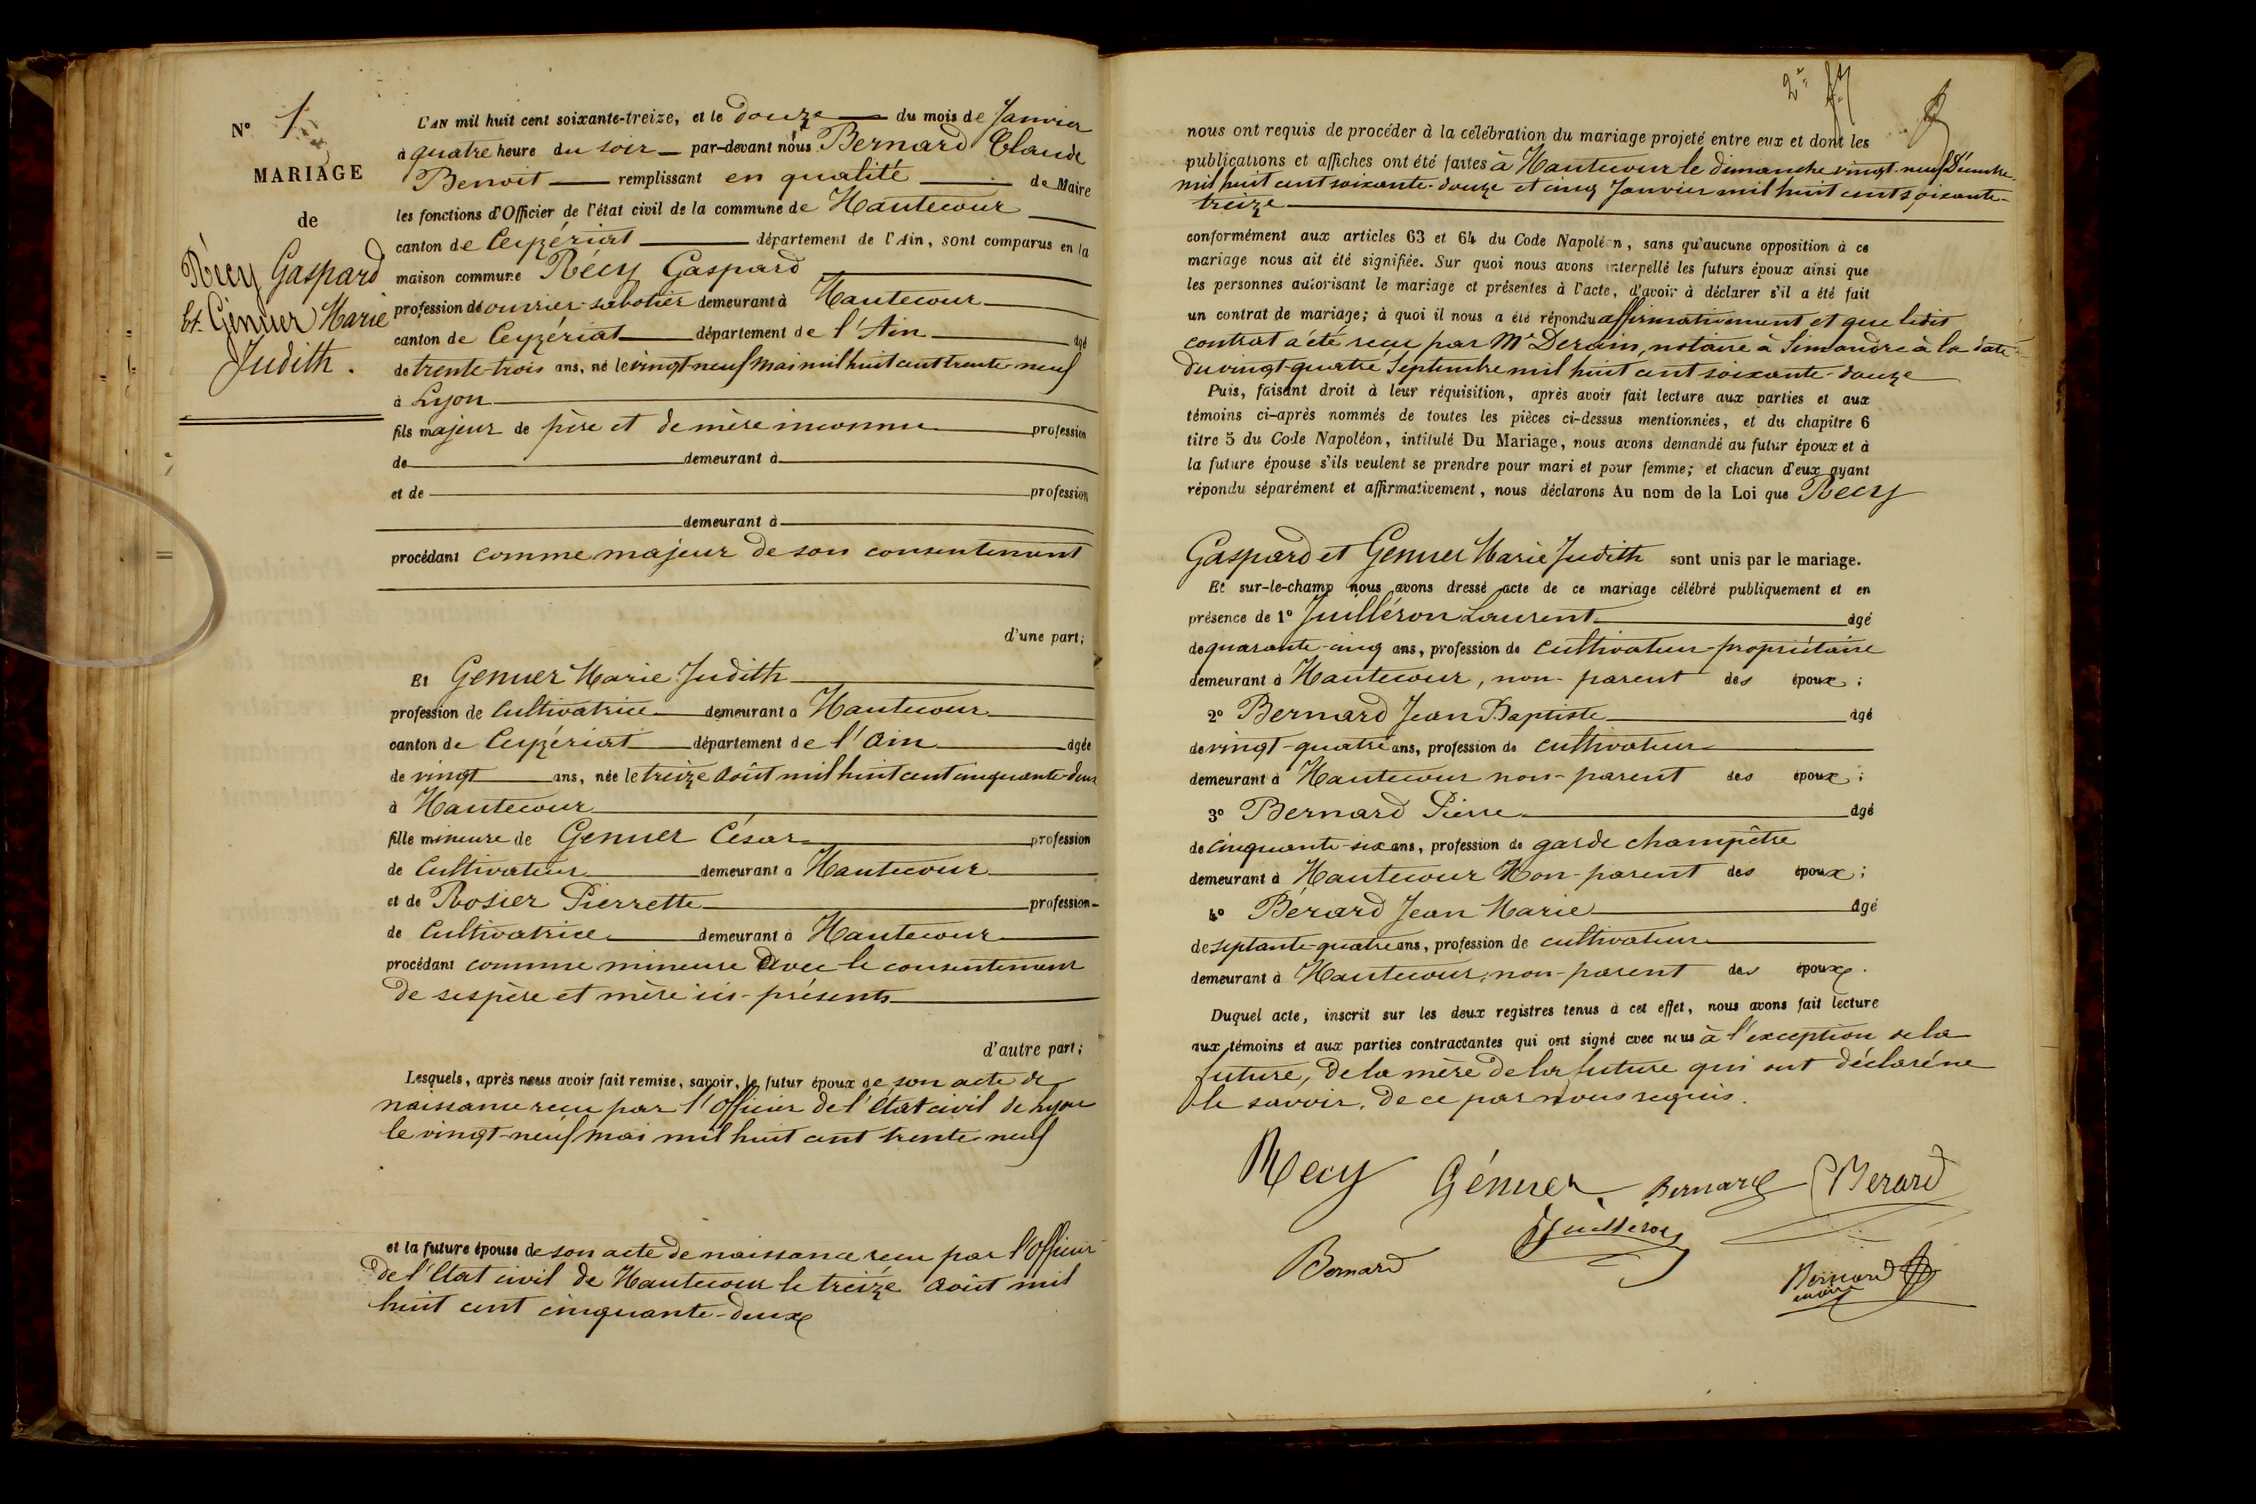 N° 1
MARIAGE
de
Récy Gaspard
Et Génuer Marie
Judith.
L'AN mil huit cent soixante-treize, et le douze du mois de Janvier
à quatre heure du soir par-devant nous Bernard Claude
Benoit remplissant en qualité de Maire
les fonctions d'Officier de l'état civil de la commune de Hautecour
canton de Ceyzériat département de l'Ain, sont comparus en la
maison commune Récy Gaspard
profession de ouvrier-sabotier demeurant à Hautecour
canton de Ceyzériat département de l'Ain âgé
de trente-trois ans, né le vingt-neuf Mai mil huit cent trente-neuf
à Lyon
fils majeur de père et de mère inconnu profession
de demeurant à
et de profession
demeurant à
procédant comme majeur de son consentement
d'une part;
Et Genuer Marie Judith
profession de Cultivatrice demeurant à Hautecour
canton de Ceyzériat département de l'Ain âgée
de vingt ans, née le treize Août mil huit cent cinquante-deux
à Hautecour
fille mineure de Genuer César profession
de Cultivateur demeurant à Hautecour
et de Rosier Pierrette profession
de Cultivatrice demeurant à Hautecour
procédant comme mineure avec le consentement
de ses père et mère ici-présents
d'autre part;
Lesquels, après nous avoir fait remise, savoir, le futur époux de son acte de
naissance reçu par l'Officier de l'État civil de Lyon
le vingt-neuf Mai mil huit cent trente-neuf
et la future épouse de son acte de naissance reçu par l'Officier
de l'État civil de Hautecour le treize Août mil
huit cent cinquante-deux
2e
nous ont requis de procéder à la célébration du mariage projeté entre eux et dont les
publications et affiches ont été faites à Hautecour le dimanche vingt-neuf Décembre
mil huit cent soixante-douze et cinq Janvier mil huit cent soixante-
treize
conformément aux articles 63 et 64 du Code Napoléon, sans qu'aucune opposition à ce
mariage nous ait été signifiée. Sur quoi nous avons interpellé les futurs époux ainsi que
les personnes autorisant le mariage et présentes à l'acte, d'avoir à déclarer s'il a été fait
un contrat de mariage; à quoi il nous a été répondu affirmativement et que ledit
contrat a été reçu par Me Derain, notaire à Simandre à la date
du vingt-quatre Septembre mil huit cent soixante-douze
Puis, faisant droit à leur réquisition, après avoir fait lecture aux parties et aux
témoins ci-après nommés de toutes les pièces ci-dessus mentionnées, et du chapitre 6
titre 5 du Code Napoléon, intitulé Du Mariage, nous avons demandé au futur époux et à
la future épouse s'ils veulent se prendre pour mari et pour femme; et chacun d'eux ayant
répondu séparément et affirmativement, nous déclarons Au nom de la Loi que Récy
Gaspard et Genuer Marie Judith sont unis par le mariage.
Et sur-le-champ nous avons dressé acte de ce mariage célébré publiquement et en
présence de 1° Juilléron Laurent âgé
de quarante-cinq ans, profession de cultivateur-propriétaire
demeurant à Hautecour, non-parent des époux;
2° Bernard Jean Baptiste âgé
de vingt-quatre ans, profession de cultivateur
demeurant à Hautecour non-parent des époux;
3° Bernard Pierre âgé
de cinquante-six ans, profession de garde champêtre
demeurant à Hautecour Non-parent des époux;
4° Bérard Jean Marie âgé
de septante-quatre ans, profession de cultivateur
demeurant à Hautecour, non-parent des époux.
Duquel acte, inscrit sur les deux registres tenus à cet effet, nous avons fait lecture
aux témoins et aux parties contractantes qui ont signé avec nous à l'exception de la
future, de la mère de la future qui ont déclaré ne
le savoir, de ce par nous requis.
Recy Génuer Bernard Berard
Bernard Juilleron Bernard
maire